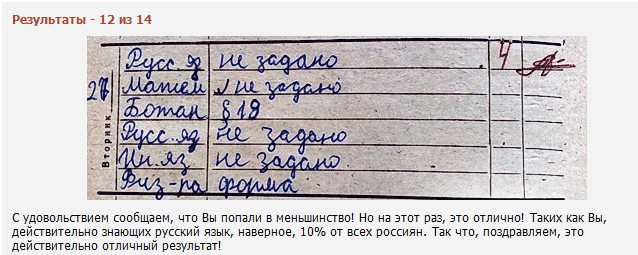 Результаты - 12 из 14
Вторник
27
Русс.яз не задано 4
Матем не задано
Ботан § 19
Русс.яз не задано
Ин.яз не задано
Физ-ра форма
С удовольствием сообщаем, что Вы попали в меньшинство! Но на этот раз, это отлично! Таких как Вы,
действительно знающих русский язык, наверное, 10% от всех россиян. Так что, поздравляем, это
действительно отличный результат!